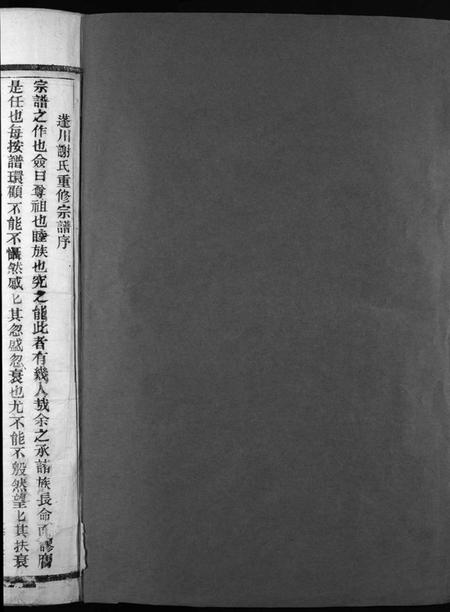 蓬川謝氏重修宗譜序
宗譜之作也僉曰尊祖也睦族也究之能此者有幾人哉余之承諸族長命而謬膺
是任也每按譜環顧不能不慨然感匕其忽盛忽衰也尤不能不毅然望匕其扶衰